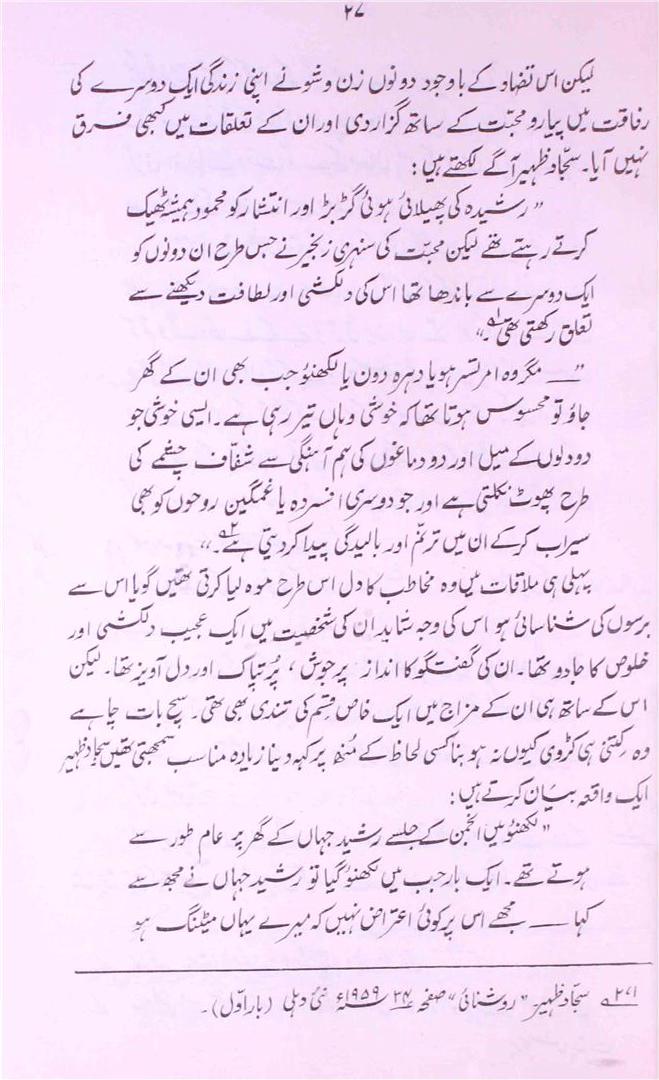 ۲۷
لیکن اس تضاد کے باوجود دونوں زن و شو نے اپنی زندگی ایک دوسرے کی
رفاقت میں پیار و محبّت کے ساتھ گزار دی اور ان کے تعلقات میں کبھی فرق
نہیں آیا۔ سجّاد ظہیر آگے لکھتے ہیں:
"رشیدہ کی پھیلائی ہوئی گڑبڑ اور انتشار کو محمود ہمیشہ ٹھیک
کرتے رہتے تھے لیکن محبّت کی سنہری زنجیر نے جس طرح ان دونوں کو
ایک دوسرے سے باندھا تھا اس کی دلکشی اور لطافت دیکھنے سے
تعلق رکھتی تھی۔۱؎"
"— مگر وہ امرتسر ہو یا دہرہ دون یا لکھنؤ جب بھی ان کے گھر
جاؤ تو محسوس ہوتا تھا کہ خوشی وہاں تیر رہی ہے۔ ایسی خوشی جو
دو دلوں کے میل اور دو دماغوں کی ہم آہنگی سے شفّاف چشمے کی
طرح پھوٹ نکلتی ہے اور جو دوسری افسردہ یا غمگین روحوں کو بھی
سیراب کر کے ان میں ترنّم اور بالیدگی پیدا کر دیتی ہے۔۲؎"
پہلی ہی ملاقات میں وہ مخاطب کا دل اس طرح موہ لیا کرتی تھیں گویا اس سے
برسوں کی شناسائی ہو اس کی وجہ شاید ان کی شخصیت میں ایک عجیب دلکشی اور
خلوص کا جادو تھا۔ ان کی گفتگو کا انداز پرجوش، پُرتپاک اور دل آویز تھا۔ لیکن
اس کے ساتھ ہی ان کے مزاج میں ایک خاص قسم کی تندی بھی تھی۔ سچ بات چاہے
وہ کتنی ہی کڑوی کیوں نہ ہو بنا کسی لحاظ کے منھ پر کہہ دینا زیادہ مناسب سمجھتی تھیں سجّاد ظہیر
ایک واقعہ بیان کرتے ہیں:
"لکھنؤ میں انجمن کے جلسے رشید جہاں کے گھر پر عام طور سے
ہوتے تھے۔ ایک بار جب میں لکھنؤ گیا تو رشید جہاں نے مجھ سے
کہا — مجھے اس پر کوئی اعتراض نہیں کہ میرے یہاں میٹنگ ہو
۱،۲؎ سجّاد ظہیر "روشنائی" صفحہ ۲۴ سنہ ۱۹۵۹ء نئی دہلی (بار اوّل)۔